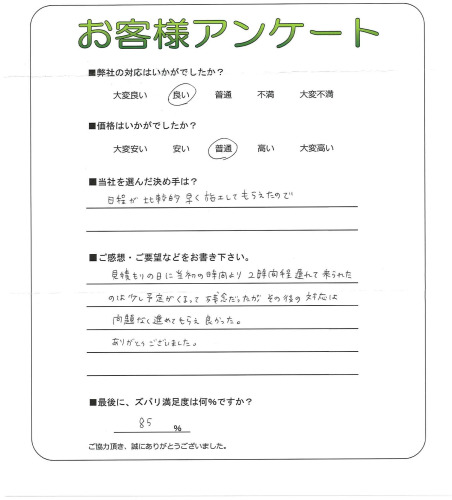 お客様アンケート
■弊社の対応はいかがでしたか？
大変良い 良い 普通 不満 大変不満
■価格はいかがでしたか？
大変安い 安い 普通 高い 大変高い
■当社を選んだ決め手は？
日程が比較的早く施工してもらえたので
■ご感想・ご要望などをお書き下さい。
見積もりの日に当初の時間より2時間程遅れて来られた
のは少し予定がくるって残念だったが その後の対応は
問題なく進めてもらえ良かった。
ありがとうございました。
■最後に、ズバリ満足度は何%ですか？
85 %
ご協力頂き、誠にありがとうございました。